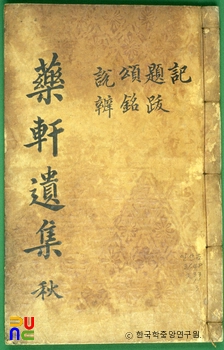 記
題跋
頌銘
說辨
藥軒遺集 秋
© 한국학중앙연구원